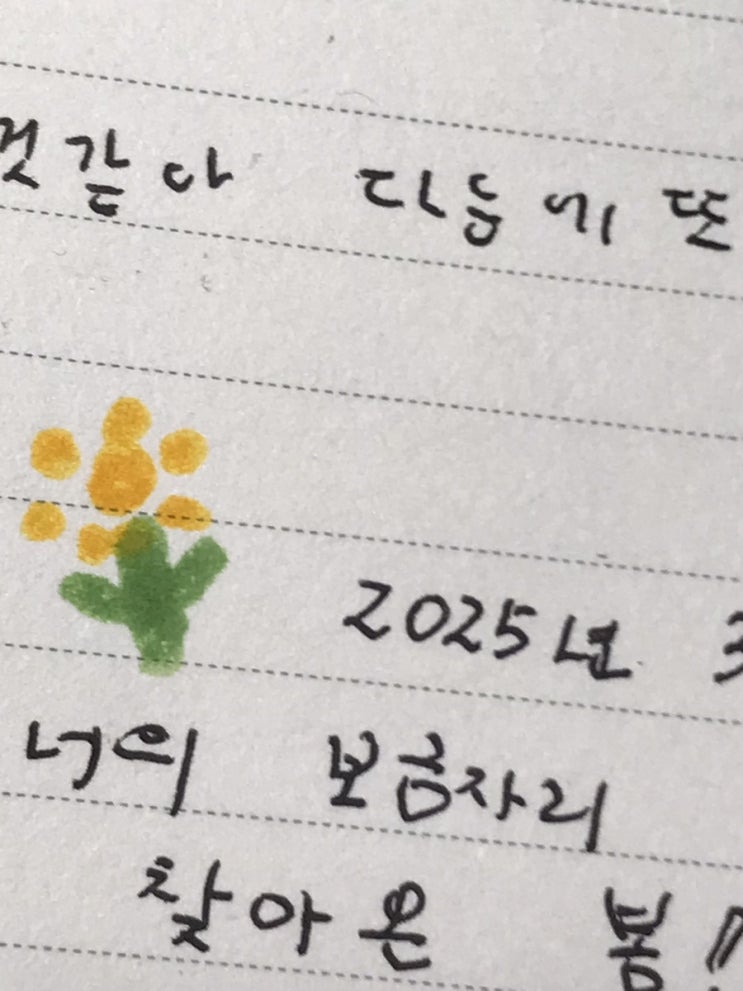 것 같아 다음에 또
2025년 3
너의 보금자리
찾아온 봄!!